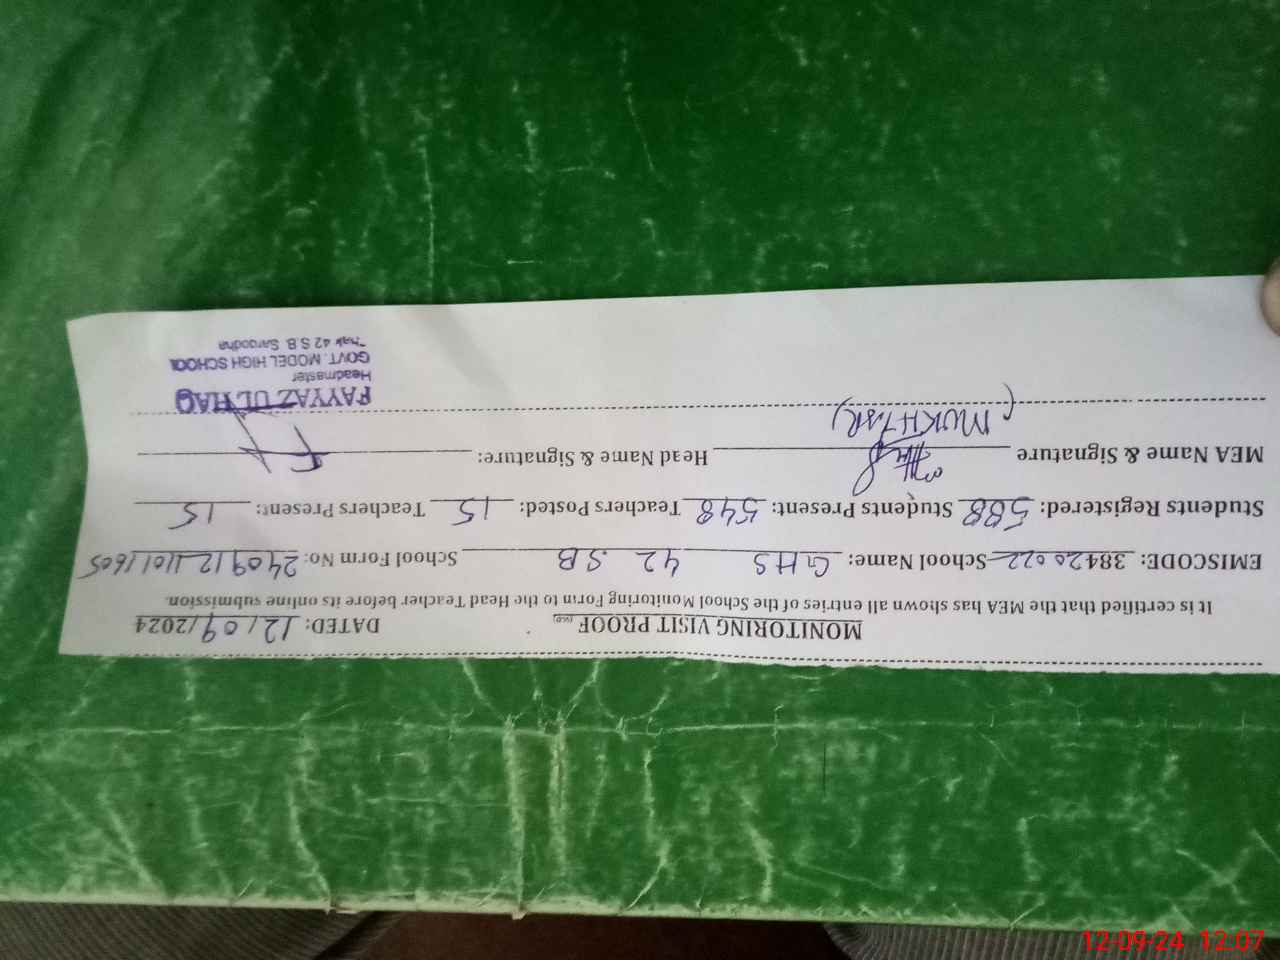 MONITORING VISIT PROOF
DATED: 12/09/2024
It is certified that the MEA has shown all entries of the School Monitoring Form to the Head Teacher before its online submission.
EMISCODE: 38420022 School Name: GHS 42 SB School Form No: 24091211011605
Students Registered: 588 Students Present: 548 Teachers Posted: 15 Teachers Present: 15
MEA Name & Signature Head Name & Signature:
(MUKHTAR)
FAYYAZ UL HAQ
Headmaster
GOVT. MODEL HIGH SCHOOL
Chak 42 S.B. Sargodha
12-09-24 12:07